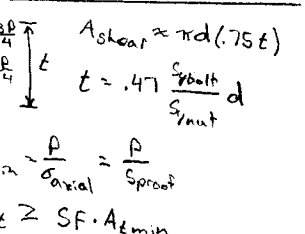 3P/4
A_shear ≈ πd(.75t)
P/4
t
t = .47 (S_y bolt / S_y nut) d
= P/σ_axial = P/S_proof
≥ SF · A_t min